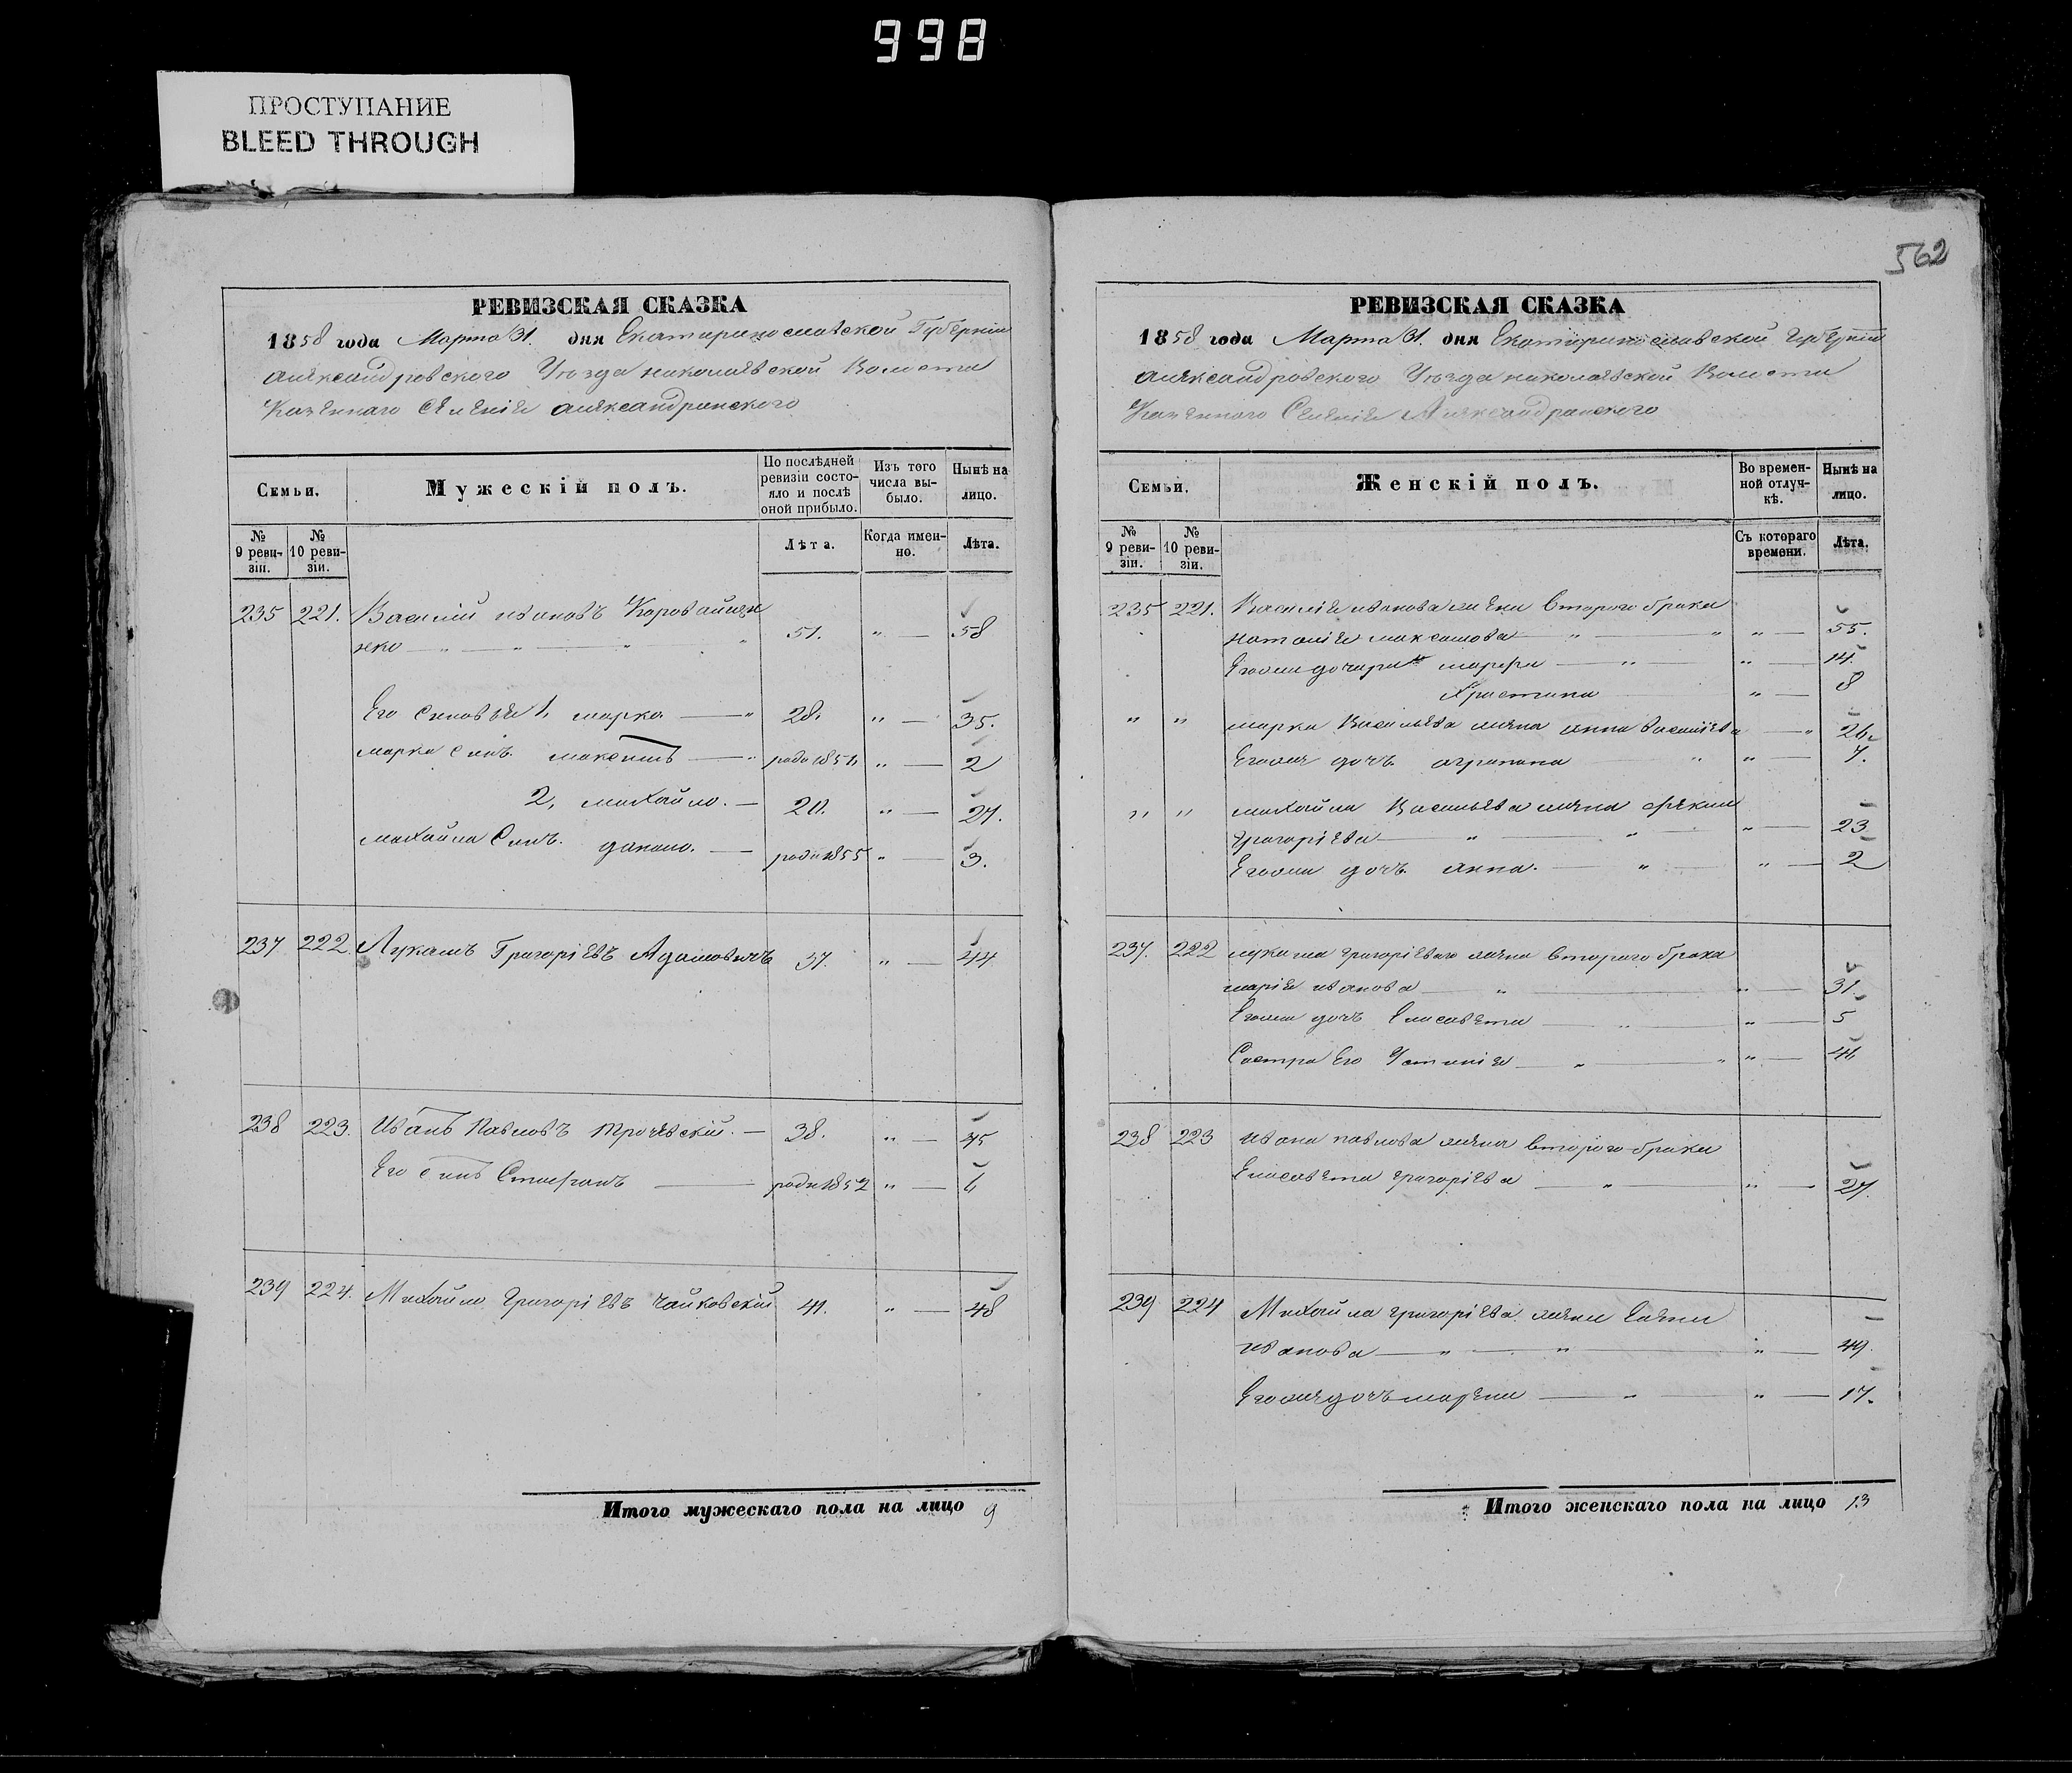 998
ПРОСТУПАНИЕ
BLEED THROUGH
РЕВИЗСКАЯ СКАЗКА
1858 года Марта 31. дня Екатеринославской Губерніи
александровского Уъзда николаевской Волости
Казенного Селеніе александринского
Семьи.
Мужескій полъ.
По послѣдней ревизіи состояло и послѣ оной прибыло.
Изъ того числа выбыло.
Нынѣ на лицо.
№ 9 ревизіи.
№ 10 ревизіи.
Лѣта.
Когда именно.
Лѣта.
235 221. Василій ивановъ Коровайчен
нко — " — " — " 51. " — 58
Его Синовья 1, марка — " 28. " — 35.
марка Синъ. максимъ — " родил 1851. " — 2
2, михайло. — 20. " — 27.
михайла Синъ. данило. — родил 1855 " — 3.
237 222 Лукашъ Григоріевъ Адамовичъ 37. " — 44
238 223. Иванъ Павловъ Трочевскій. — 38. " — 45
Его синъ Стефанъ — родил 1852 " — 6
239 224. Михайло Григоріевъ Чайковскій 41. " — 48
Итого мужескаго пола на лицо 9
562
РЕВИЗСКАЯ СКАЗКА
1858 года Марта 31. дня Екатеринославской Губерніи
александровского Уъзда николаевской Волости
Казенного Селеніе Александринского
Семьи.
Женскій полъ.
Во временной отлучкѣ.
Нынѣ на лицо.
№ 9 ревизіи.
№ 10 ревизіи.
Съ котораго времени.
Лѣта.
235 221. Василіе иванова жена второго брака
наталіе максимова — " — " " — 55.
Егоже дочери марфа — " " — 14.
Христина " — 8
" " марка Васильева жена анна василіева — " 26.
Егоже дочъ. агрипина " " — 7.
" " михайла Васильева жена фекла
григоріева — " — " " — 23
Егоже дочъ. анна. — " " — 2
237. 222 лукаша григоріева жена второго брака
маріе иванова — " — " — 31.
Егоже дочъ Елисавета — " — " — 5
Састра Его Устиніе — " — " " — 41
238 223 ивана павлова жена второго брака
Елисавета григоріева — " — " — 27.
239 224 Михайла григоріева. жена Елена
иванова — " — " — " — 49.
Егоже дочъ марена — " — " — 17.
Итого женскаго пола на лицо 13